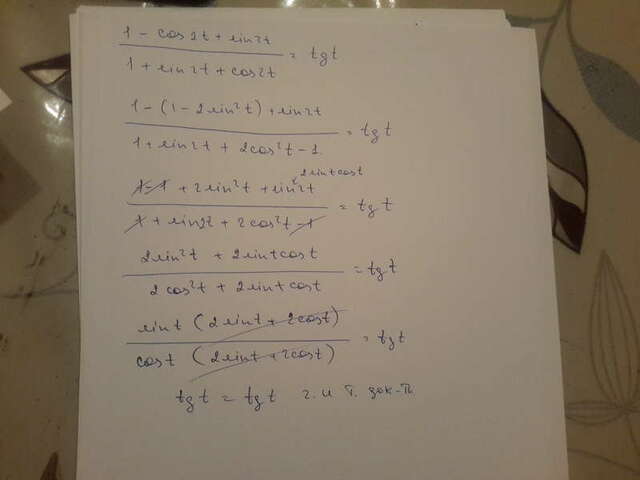 1 - cos2t + sin2t
/ 1 + sin2t + cos2t = tg t
1 - (1 - 2sin²t) + sin2t
/ 1 + sin2t + 2cos²t - 1 = tg t
2sintcost
1 - 1 + 2sin²t + sin2t
/ 1 + sin2t + 2cos²t - 1 = tg t
2sin²t + 2sintcost
/ 2cos²t + 2sintcost = tg t
sint (2sint + 2cost)
/ cost (2sint + 2cost) = tg t
tg t = tg t ч. и т. док-ть